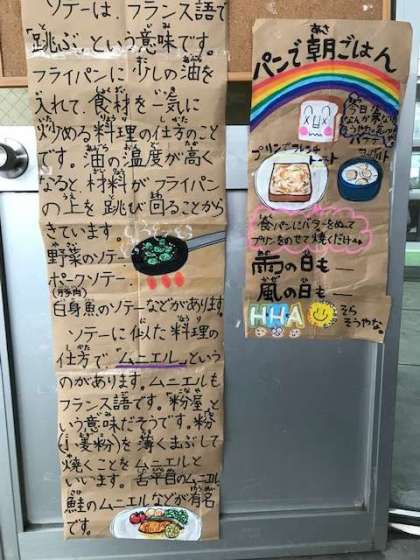 ソテーは、フランス語で
「跳ぶ」という意味です。
フライパンに少しの油を
入れて、食材を一気に
炒める料理の仕方のこと
です。油の温度が高く
なると、材料がフライパン
の上を跳び回ることから
きています。
野菜のソテー
ポークソテー
白身魚のソテーなどがあります。
ソテーに似た料理の
仕方で「ムニエル」という
のがあります。ムニエルも
フランス語です。"粉屋"と
いう意味だそうです。粉
(小麦粉)を薄くまぶして
焼くことをムニエルと
いいます。舌平目のムニエル
鮭のムニエルなどが有名
です。
パンで朝ごはん
プリンでフレンチ
トースト
食パンにバターをぬって
プリンをのせて焼くだけ
雨の日も
嵐の日も
HHA
そら
そうやな。